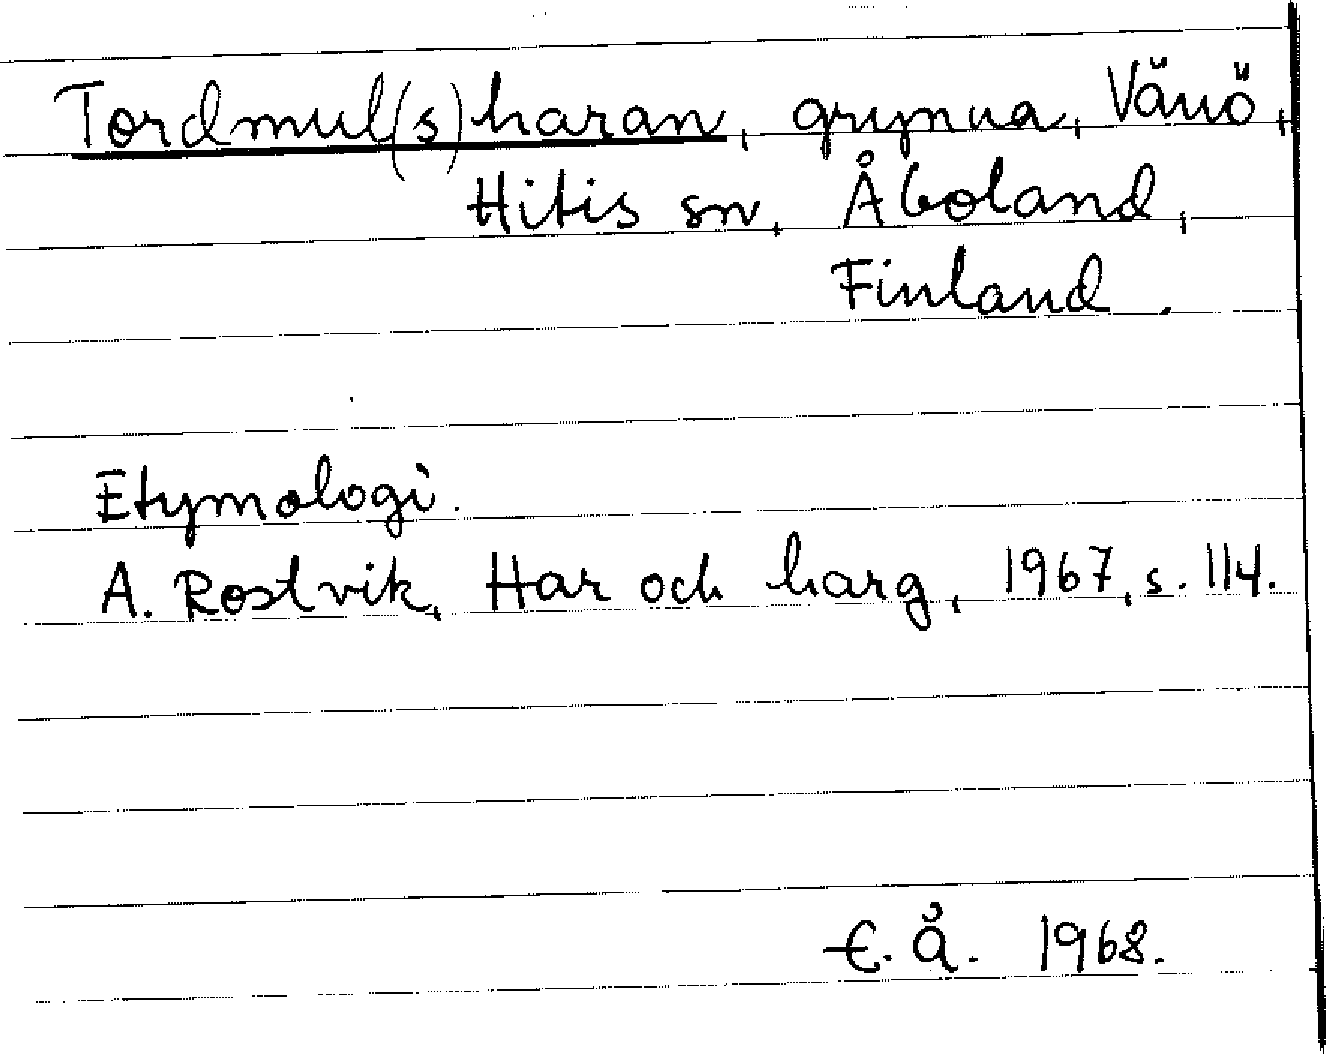 Tordmul(s)haran, grynna, Vänö,
Hitis sn, Åboland,
Finland.
Etymologi.
A. Rostvik, Har och harg, 1967, s. 114.
E. Å. 1968.